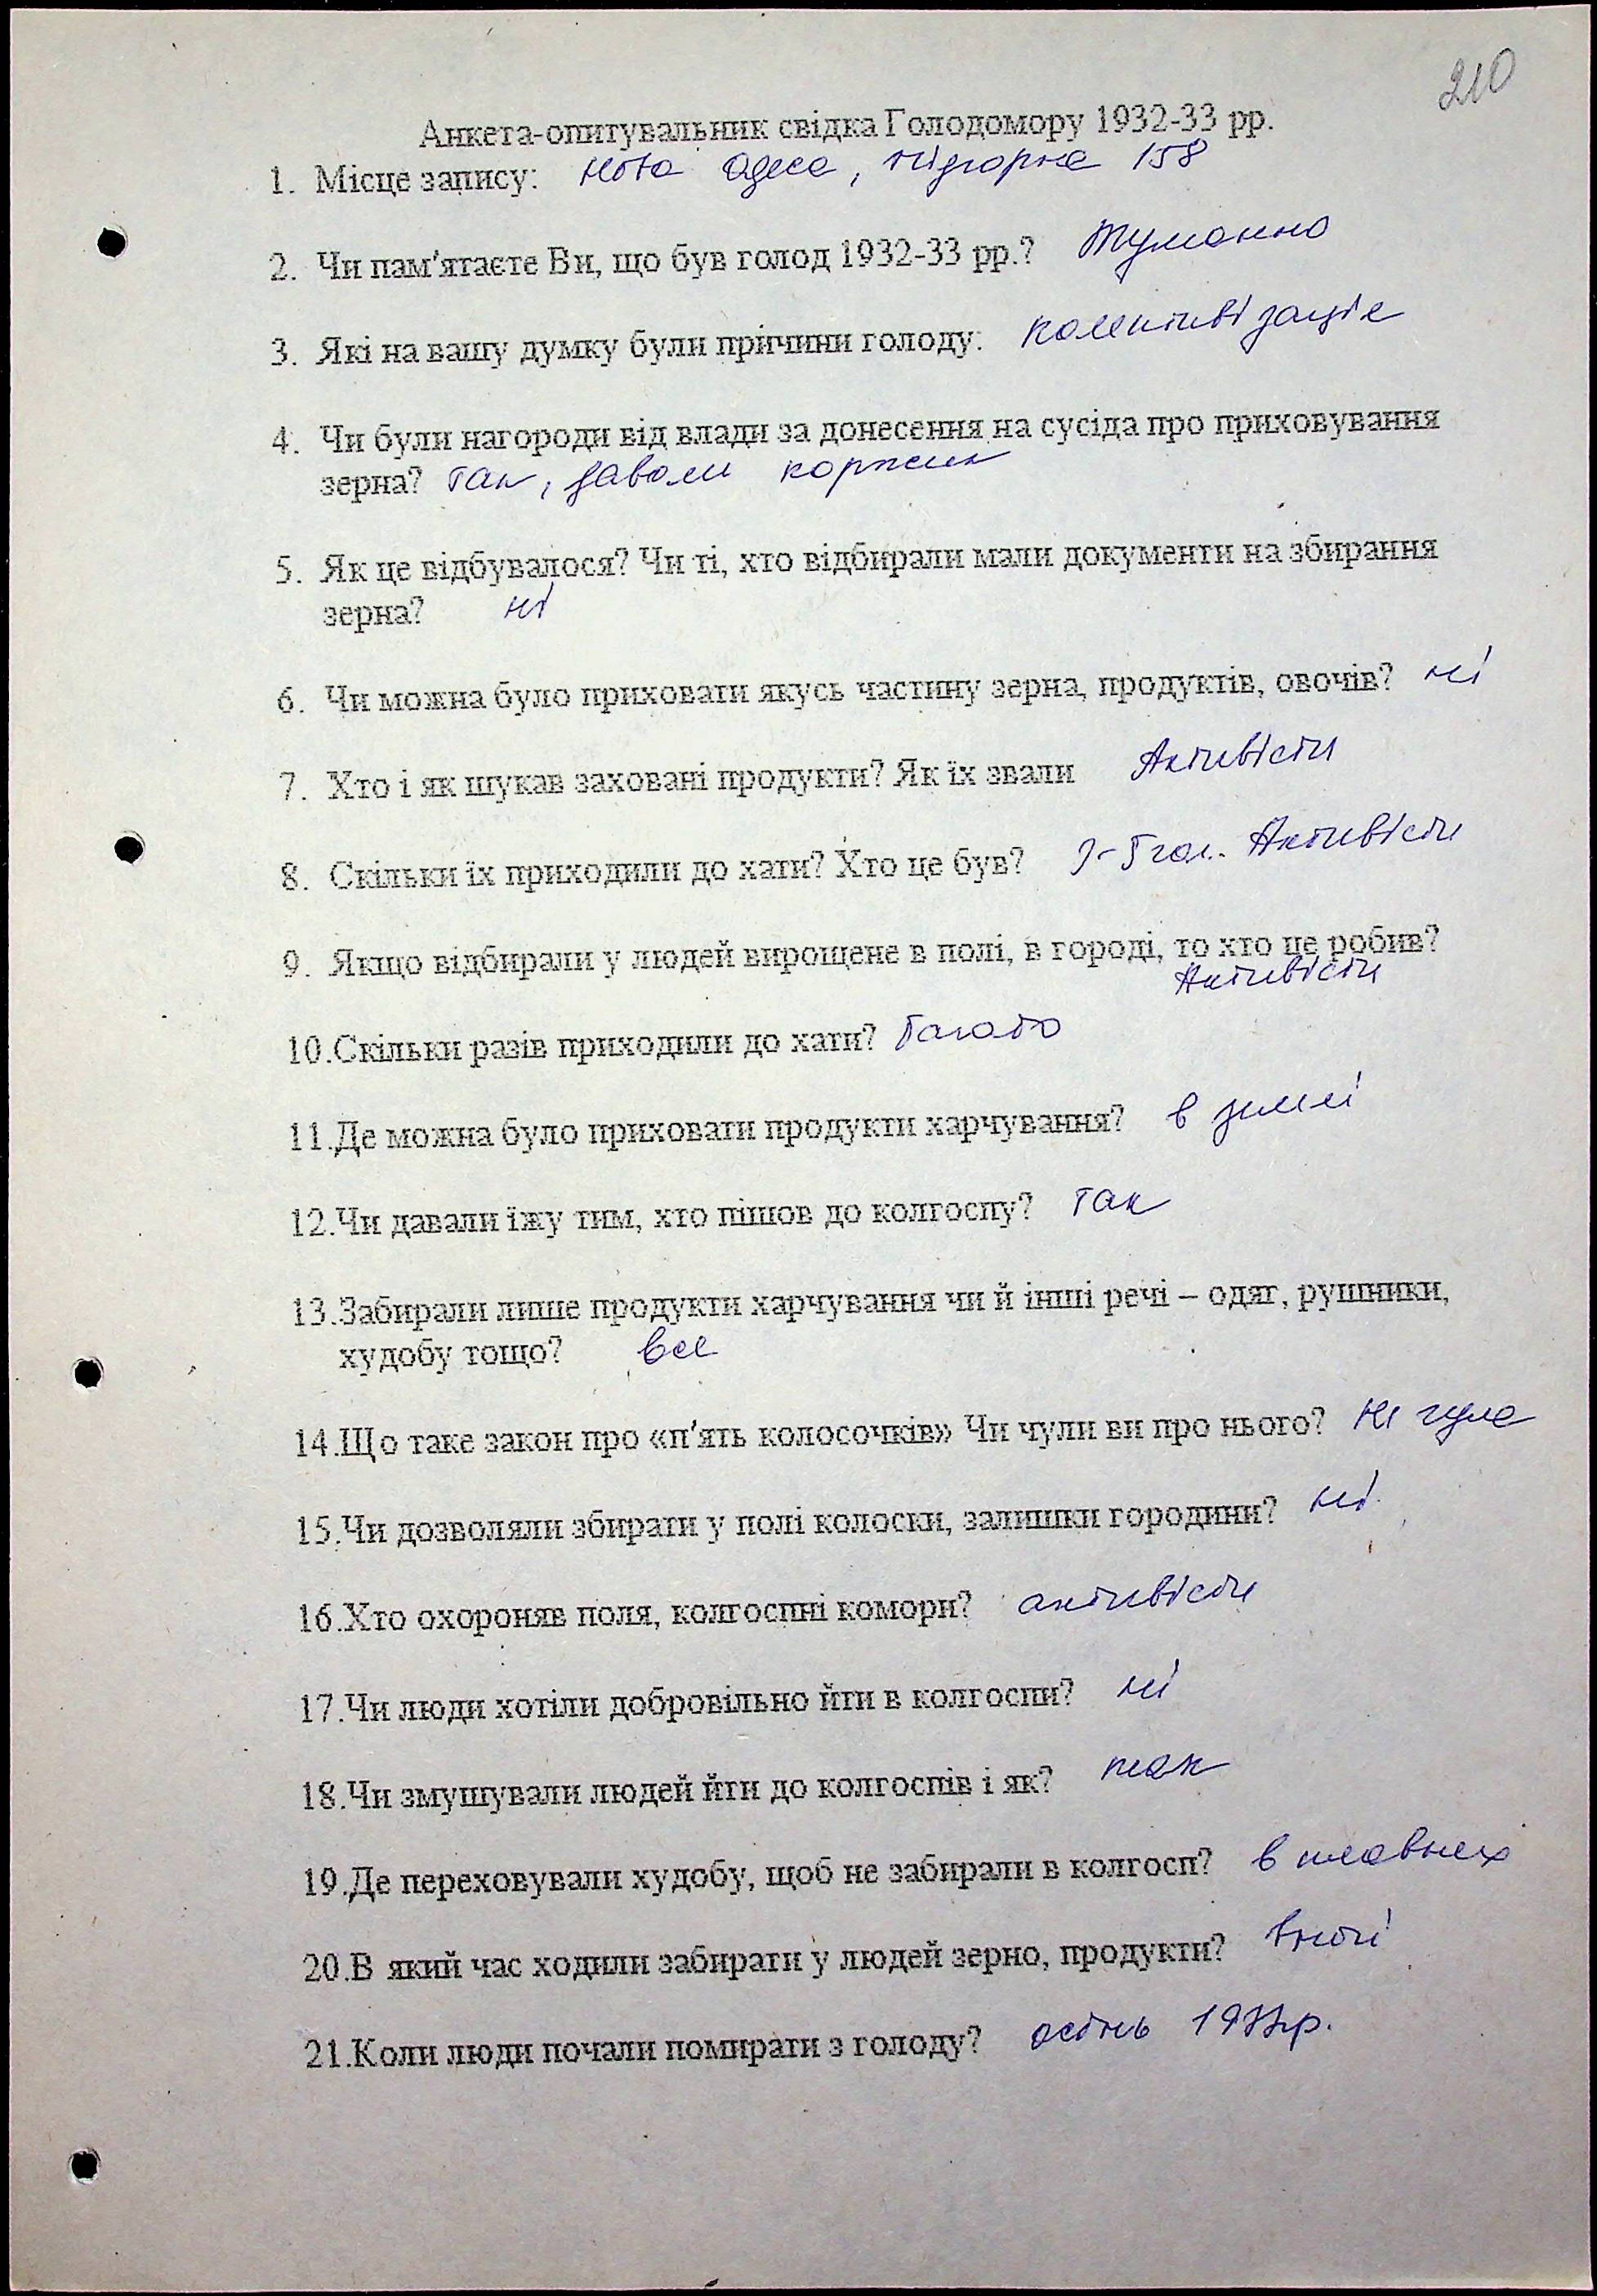 210
Анкета-опитувальник свідка Голодомору 1932-33 рр.
1. Місце запису: Нова Одеса, Підгорна 158
2. Чи пам'ятаєте Ви, що був голод 1932-33 рр.? Туманно
3. Які на вашу думку були причини голоду: колективізація
4. Чи були нагороди від влади за донесення на сусіда про приховування
зерна? так, давали коржик
5. Як це відбувалося? Чи ті, хто відбирали мали документи на збирання
зерна? ні
6. Чи можна було приховати якусь частину зерна, продуктів, овочів? ні
7. Хто і як шукав заховані продукти? Як їх звали Активісти
8. Скільки їх приходили до хати? Хто це був? 3-5 чол. Активісти
9. Якщо відбирали у людей вирощене в полі, в городі, то хто це робив?
Активісти
10.Скільки разів приходили до хати? Багато
11.Де можна було приховати продукти харчування? в землі
12.Чи давали їжу тим, хто пішов до колгоспу? так
13.Забирали лише продукти харчування чи й інші речі – одяг, рушники,
худобу тощо? все
14.Що таке закон про «п'ять колосочків» Чи чули ви про нього? не чула
15.Чи дозволяли збирати у полі колоски, залишки городини? ні.
16.Хто охороняв поля, колгоспні комори? активісти
17.Чи люди хотіли добровільно йти в колгоспи? ні
18.Чи змушували людей йти до колгоспів і як? так
19.Де переховували худобу, щоб не забирали в колгосп? в плавнях
20.В який час ходили забирати у людей зерно, продукти? вночі
21.Коли люди почали помирати з голоду? осінь р.